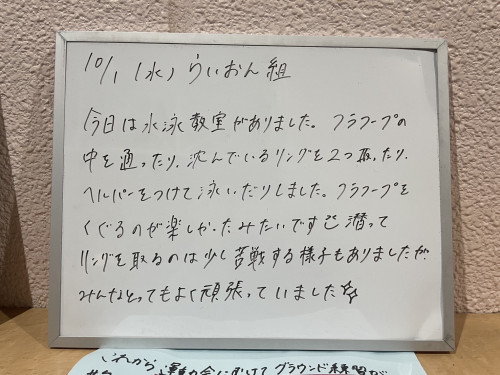 10/1 (水) らいおん組
今日は水泳教室がありました。フラフープの
中を通ったり、沈んでいるリングを2つ取ったり、
ヘルパーをつけて泳いだりしました。フラフープを
くぐるのが楽しかったみたいです 潜って
リングを取るのは少し苦戦する様子もありましたが
みんなとってもよく頑張っていました☆
これから
運動会に向けてグラウンド練習が